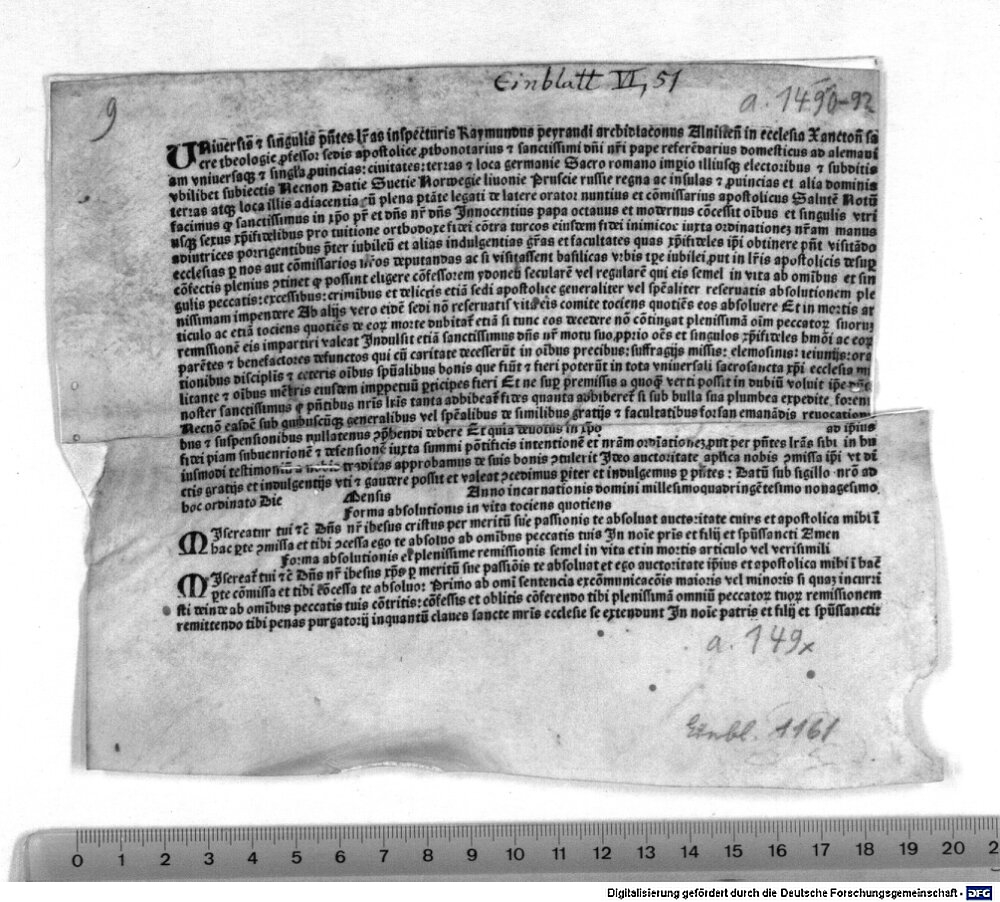 Einblatt VI, 51
9
a. 1490-92
UNiuersis ⁊ singulis pñtes lr̃as inspecturis Raymundus peyraudi archidiaconus Alnisieñ in ecclesia Xanctoñ sa
cre theologie ꝓfessor sedis apostolice ꝓthonotarius ⁊ sanctissimi dñi nr̃i pape referẽdarius domesticus ad alemani
am vniuersaqꝫ ⁊ singl̃a ꝓuincias: ciuitates: terras ⁊ loca germanie Sacro romano imꝑio illiusqꝫ electoribus ⁊ subditis
vbilibet subiectis Necnon Datie Suetie Norwegie liuonie Pruscie russie regna ac insulas ⁊ ꝓuincias et alia dominia
terras atqꝫ loca illis adiacentia cũ plena ptãte legati de latere orator nuntius et cõmissarius apostolicus Salutẽ Notũ
facimus ꝙ sanctissimus in xp̃o pr̃ et dñs nr̃ dñs Innocentius papa octauus et modernus cõcessit oĩbus et singulis vtri
usqꝫ sexus xp̃ifidelibus pro tuitione orthodoxe fidei cõtra turcos eiusdem fidei inimicos iuxta ordinationeꝫ nr̃am manus
adiutrices porrigentibus p̃ter iubileũ et alias indulgentias gr̃as et facultates quas xp̃ifideles ip̃i obtinere pñt visitãdo
ecclesias ꝑ nos aut cõmissarios nr̃os deputandas ac si visitassent basilicas vrbis tpe iubilei, put in lr̃is apostolicis desuꝑ
cõfectis plenius ꝯtinet̃ ꝙ possint eligere cõfessorem ydoneũ secularẽ vel regularẽ qui eis semel in vita ab omĩbus et sin
gulis peccatis: excessibus: crimĩbus et delictis etiã sedi apostolice generaliter vel sp̃ealiter reseruatis absolutionem ple
nissimam impendere Ab alijs vero eidẽ sedi nõ reseruatis vita eis comite tociens quotiẽs eos absoluere Et in mortis ar
ticulo ac etiã tociens quotiẽs de eoꝝ morte dubitat̃ etiã si tunc eos decedere nõ cõtingat plenissimã oĩm peccatoꝝ suoruꝫ
remissionẽ eis impartiri valeat Indulsit etiã sanctissimus dñs nr̃ motu suo ꝓprio oẽs et singulos xp̃ifideles hmõi ac eoꝝ
parẽtes ⁊ benefactores defunctos qui cũ caritate decesserũt in oĩbus precibus: suffragijs missis: elemosinis: ieiunijs: ora
tionibus disciplis ⁊ ceteris oĩbus sp̃ualibus bonis que fiũt ⁊ fieri poterũt in tota vniuersali sacrosancta xp̃i ecclesia mi
litante ⁊ oĩbus mẽbris eiusdem imꝑpetuũ ꝑticipes fieri Et ne suꝑ premissis a quoqꝫ verti possit in dubiũ voluit ip̃e dñs
noster sanctissimus ꝙ pñtibus nr̃is lr̃is tanta adhibeat̃ fides quanta adhiberet̃ si sub bulla sua plumbea expedite forent
Necnõ easdẽ sub quibuscũqꝫ generalibus vel sp̃ealibus de similibus gratijs ⁊ facultatibus forsan emanãdis reuocationi
bus ⁊ suspensionibus nullatenus ꝯp̃hendi debere Et quia deuotus in xp̃o ad ip̃ius
fidei piam subuentionẽ ⁊ defensionẽ iuxta summi põtificis intentionẽ et nr̃am ordiationeꝫ put per pñtes lr̃as sibi in hu
iusmodi testimoniũ a nobis traditas approbamus de suis bonis ꝯtulerit Ideo auctoritate ap̃lica nobis ꝯmissa ip̃i vt di
ctis gratijs et indulgentijs vti ⁊ gaudere possit et valeat ꝯcedimus ꝑiter et indulgemus ꝑ pñtes: Datũ sub sigillo nr̃o ad
hoc ordinato Die Mensis Anno incarnationis domini millesimoquadringẽtesimo nonagesimo
Forma absolutionis in vita tociens quotiens
MIsereatur tui ⁊c̃ Dñs nr̃ ihesus cristus per meritũ sue passionis te absoluat auctoritate cuius et apostolica mihi ĩ
hac ꝑte ꝯmissa et tibi ꝯcessa ego te absoluo ab omĩbus peccatis tuis In noĩe pr̃is et filij et sp̃ussancti Amen
Forma absolutionis et plenissime remissionis semel in vita et in mortis articulo vel verisimili
MIsereat̃ tui ⁊c̃ Dñs nr̃ ihesus xp̃s ꝑ meritũ sue passiõis te absoluat et ego auctoritate ip̃ius et apostolica mihi ĩ hac
ꝑte cõmissa et tibi cõcessa te absoluo: Primo ab omĩ sentencia excõmunicacõis maioris vel minoris si quaꝫ incurri
sti deinde ab omĩbus peccatis tuis cõtritis: cõfessis et oblitis cõferendo tibi plenissimã omniũ peccatoꝝ tuoꝝ remissionem
remittendo tibi penas purgatorij inquantũ claues sancte mr̃is ecclesie se extendunt In noĩe patris et filij et sp̃ussancti:
a. 149x
Einbl. 1161
0 1 2 3 4 5 6 7 8 9 10 11 12 13 14 15 16 17 18 19 20
Digitalisierung gefördert durch die Deutsche Forschungsgemeinschaft - DFG